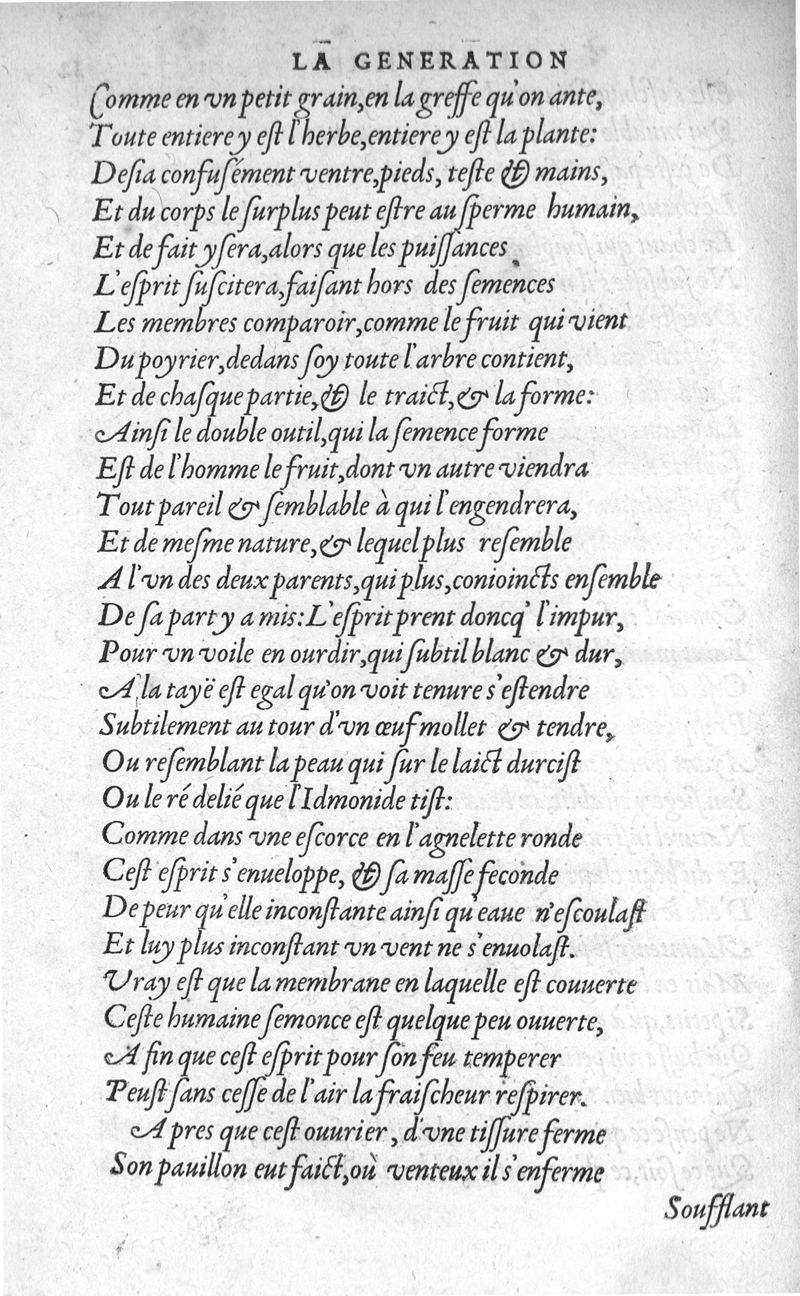 LA GENERATION
Comme en vn petit grain, en la greffe qu'on ante,
Toute entiere y eſt l'herbe, entiere y eſt la plante:
Deſia confuſément ventre, pieds, teſte & mains,
Et du corps le ſurplus peut eſtre au ſperme humain,
Et de fait y ſera, alors que les puiſſances
L'eſprit ſuſcitera, faiſant hors des ſemences
Les membres comparoir, comme le fruit qui vient
Du poyrier, dedans ſoy toute l'arbre contient,
Et de chaſque partie, & le traict, & la forme:
Ainſi le double outil, qui la ſemence forme
Eſt de l'homme le fruit, dont vn autre viendra
Tout pareil & ſemblable à qui l'engendrera,
Et de meſme nature, & lequel plus reſemble
A l'vn des deux parents, qui plus, conioincts enſemble
De ſa part y a mis: L'eſprit prent doncq' l'impur,
Pour vn voile en ourdir, qui ſubtil blanc & dur,
A la tayë eſt egal qu'on voit tenure s'eſtendre
Subtilement au tour d'vn œuf mollet & tendre,
Ou reſemblant la peau qui ſur le laict durciſt
Ou le ré delié que l'Idmonide tiſt:
Comme dans vne eſcorce en l'agnelette ronde
Ceſt eſprit s'enueloppe, & ſa maſſe feconde
De peur qu'elle inconſtante ainſi qu'eaue n'eſcoulaſt
Et luy plus inconſtant vn vent ne s'enuolaſt.
Vray eſt que la membrane en laquelle eſt couuerte
Ceſte humaine ſemonce eſt quelque peu ouuerte,
A fin que ceſt eſprit pour ſon feu temperer
Peuſt ſans ceſſe de l'air la fraiſcheur reſpirer.
Apres que ceſt ouurier, d'vne tiſſure ferme
Son pauillon eut faict, où venteux il s'enferme
Soufflant